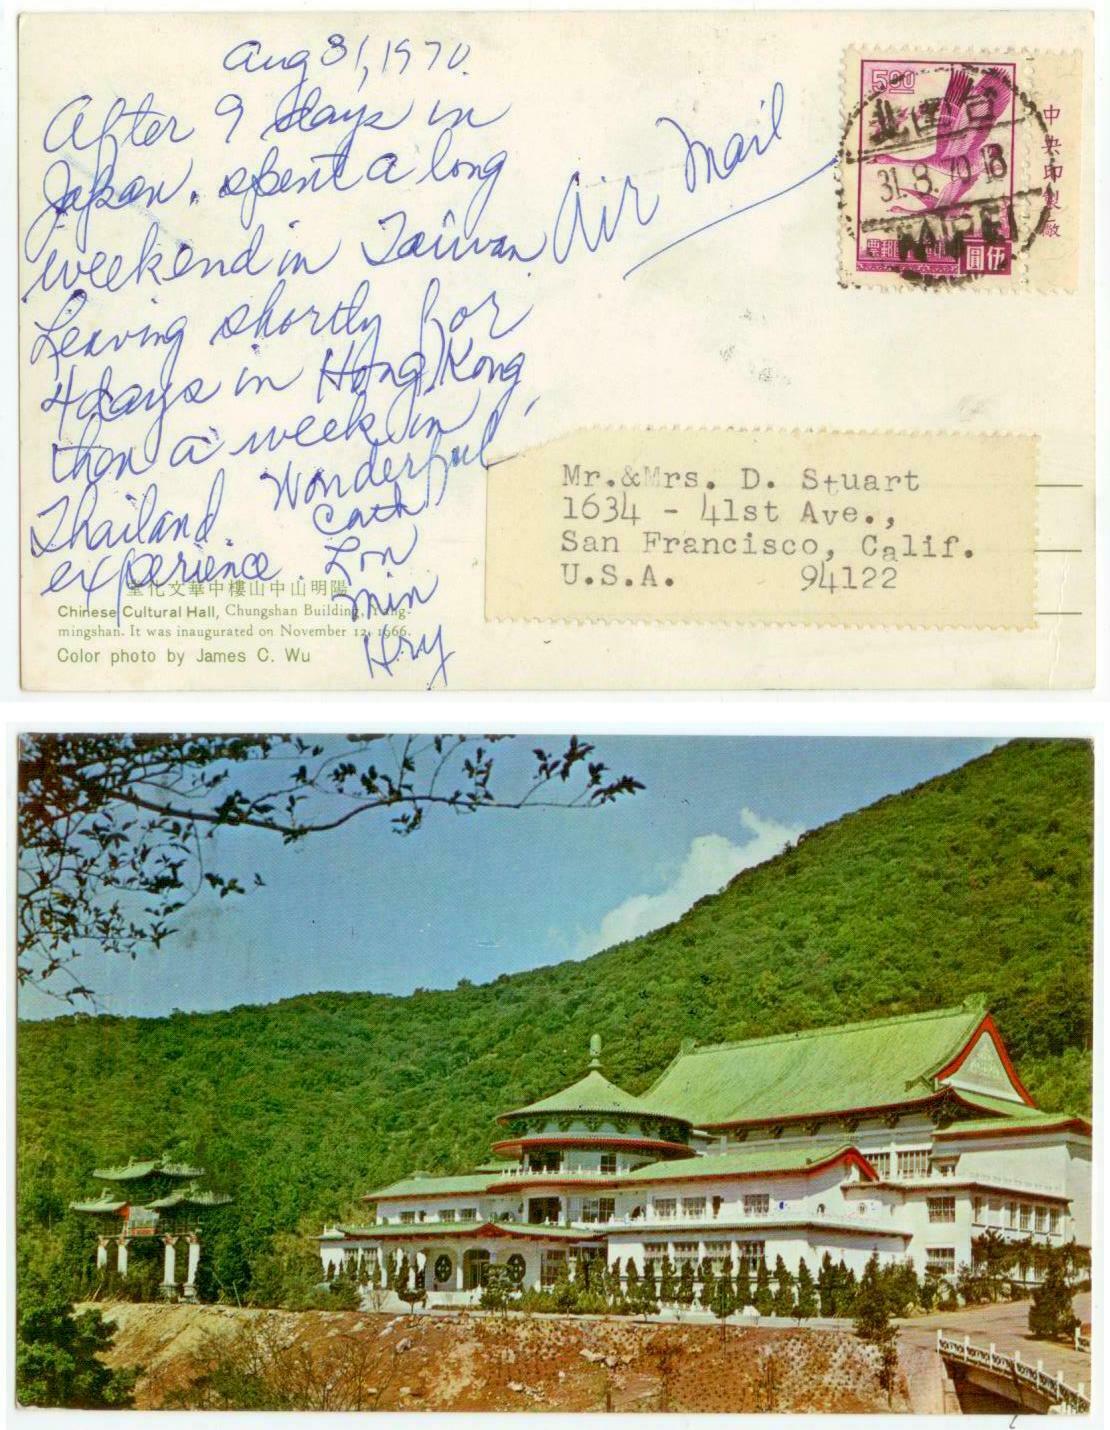 Aug 31, 1970.
After 9 days in
Japan. spent a long
weekend in Taiwan
Leaving shortly for
4 days in Hong Kong,
then a week in
Thailand. Wonderful
experience.
Cath
Lon
Min
Hry
Air Mail
5.00
北臺
31.8.70.18
TAIPEI
伍圓
中央印製廠
Mr.&Mrs. D. Stuart
1634 - 41st Ave.,
San Francisco, Calif.
U.S.A. 94122
堂化文華中樓山中山明陽
Chinese Cultural Hall, Chungshan Building, Yang-
mingshan. It was inaugurated on November 12, 1966.
Color photo by James C. Wu